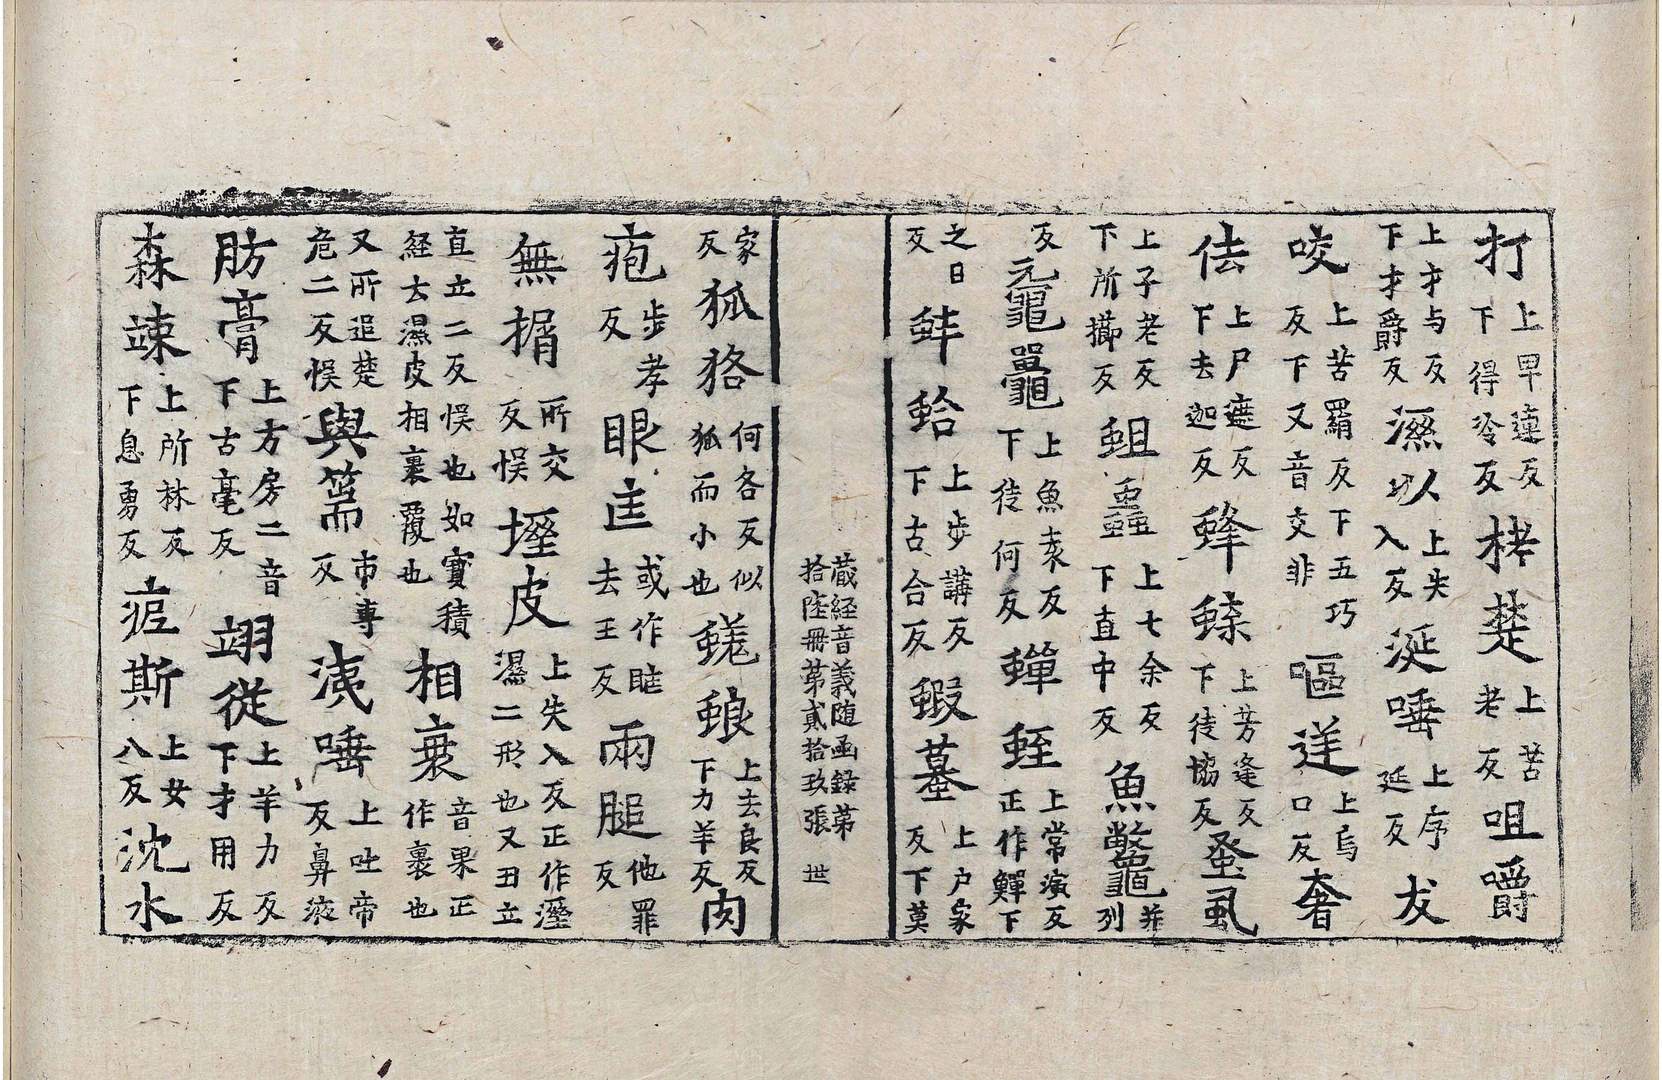 打上卑連反下得冷反栲楚上苦老反咀嚼
上才与反下才爵反濕以上失入反涎唾上序延反犮
咬上苦羂反下五巧反下又音交非嘔逆上烏口反奢
佉上尸遮反下去迦反蜂䗁上芳逢反下徒協反蚤虱
上子老反下所擳反蛆蟲上七余反下直中反魚鼈并列
反黿鼉上魚袁反下徒何反蟬蛭上常演反正作鱓下
之日反蚌蛤上步講反下古合反蝦蟇上户家反下莫
藏経音義随函録第拾陸冊第貳拾玖張 世
家反狐狢何各反似狐而小也蜣蜋上去良反下力羊反肉
疱步孝反眼𥆡或作眶去王反兩腿他罪反
無揟所交反悮壥皮上失入反正作溼濕二形也又丑立
直立二反悮也如寶積経云濕皮相裹覆也相裹音果正作裹也
又所追楚危二反悮與篅市專反洟唾上吐帝反鼻液
肪膏上方房二音下古毫反翊從上羊力反下才用反
森竦上所林反下息勇反痆斯上女八反沈水